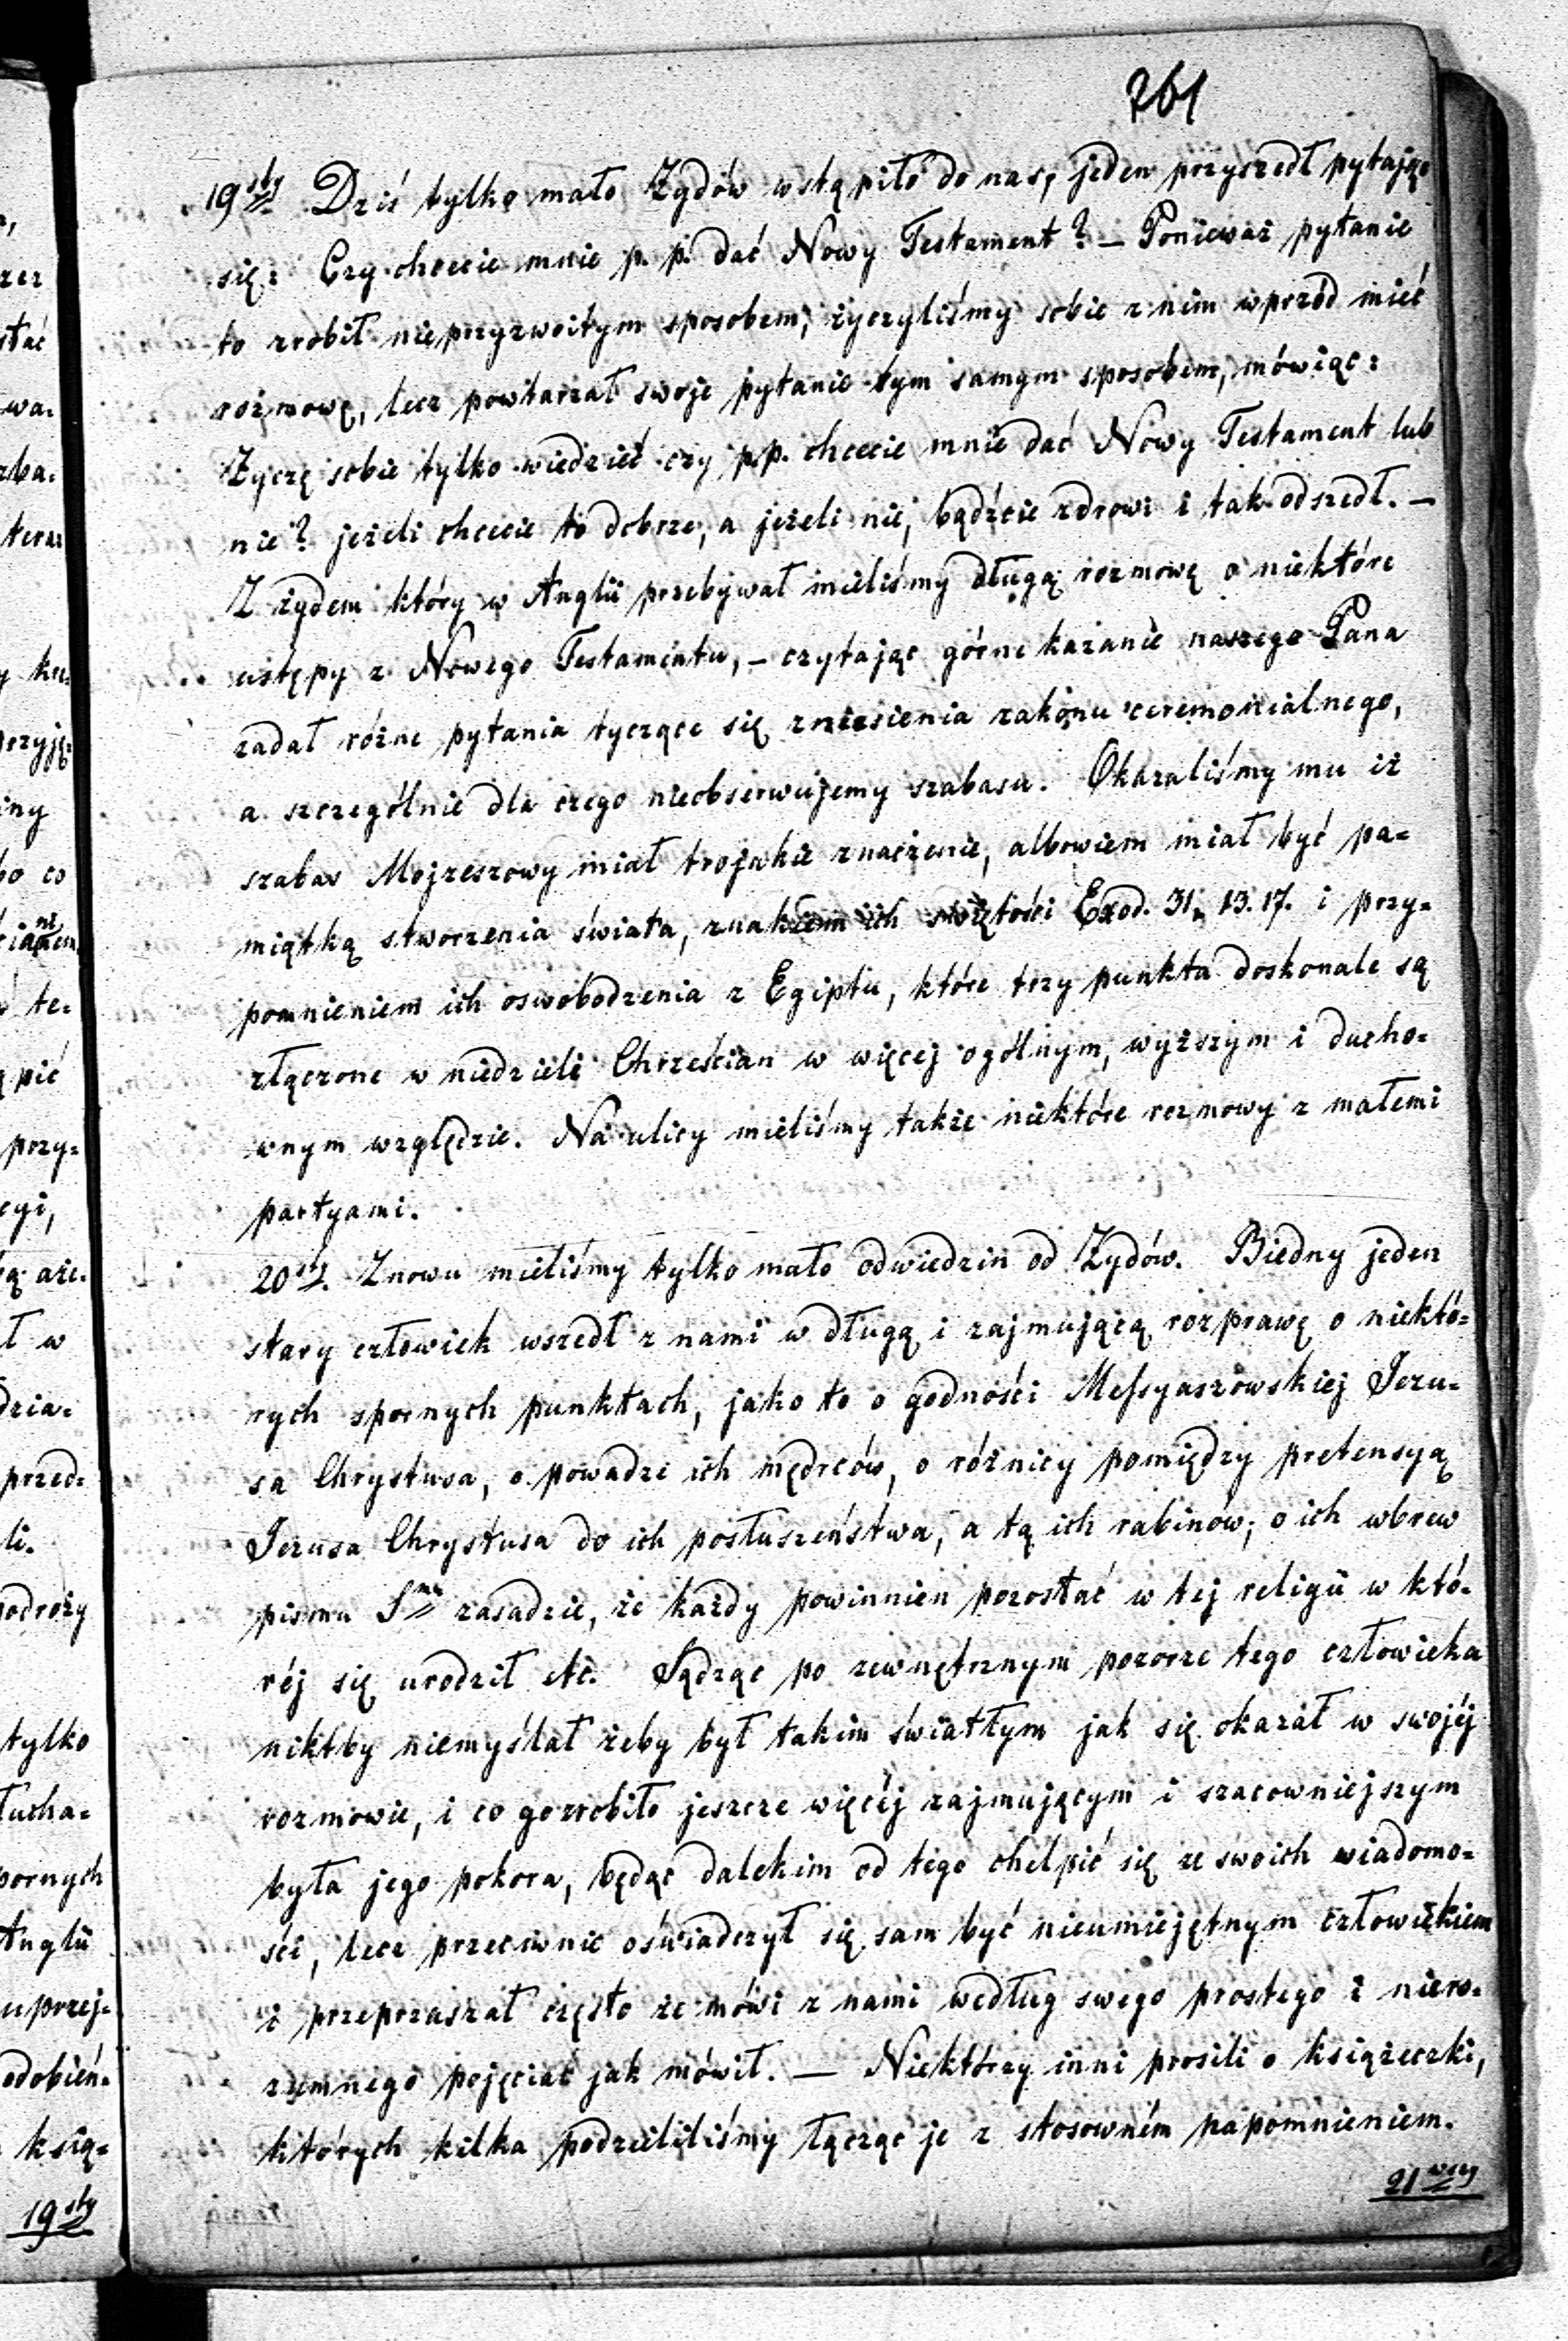 261
19sty Dziś tylko mało Żydów wstąpiło do nas, jeden przyszedł pytając
się: Czy chcecie mnie p. p. dać Nowy Testament? — Ponieważ pytanie
to zrobił nieprzyzwoitym sposobem, życzyliśmy sobie z nim wprzód mieć
rozmowę, lecz powtarzał swoje pytanie tym samym sposobem, mówiąc:
Życzę sobie tylko wiedzieć czy p.p. chcecie mnie dać Nowy Testament lub
nie? jeżeli chcecie to dobrze, a jeżeli nie, bądźcie zdrowi i tak odszedł. —
Z żydem który w Anglii przebywał mieliśmy długą rozmowę o niektóre
ustępy z Nowego Testamentu, — czytając górne kazanie naszego Pana
zadał różne pytania tyczące się zniesienia zakonu ceremonialnego,
a szczególnie dla czego nieobserwujemy szabasu. Okazaliśmy mu iż
szabas Mojzeszowy miał trojakie znaczenie, albowiem miał być pa-
miątką stworzenia świata, znakiem ich świętości Exod. 31, 13. 17. i przy-
pomnieniem ich oswobodzenia z Egiptu, które trzy punkta doskonale są
złączone w niedzieli Chrześcian w więcej ogólnym, wyższym i ducho-
wnym względzie. Na ulicy mieliśmy także niektóre rozmowy z małemi
partyami.
20sty. Znowu mieliśmy tylko mało odwiedzin od Żydów. Biedny jeden
stary człowiek wszedł z nami w długą i zajmującą rozprawę o niektó-
rych spornych punktach, jako to o godności Messyaszowskiej Jezu-
sa Chrystusa, o powadze ich mędrców, o różnicy pomiędzy pretensyą
Jezusa Chrystusa do ich posłuszeństwa, a tą ich rabinów; o ich wbrew
pismu Smu zasadzie, że każdy powinnien pozostać w tej religii w któ-
rój się urodził etc. Sądząc po zewnętrznym pozorze tego człowieka
niktby niemyślał żeby był takim światłym jak się okazał w swojéj
rozmowie, i co go zrobiło jeszcze więcéj zajmującym i szacowniejszym
była jego pokora, będąc dalekim od tego chełpić się ze swoich wiadomo-
ści, lecz przeciwnie oświadczył się sam być nieumiejętnym człowiekiem
i przepraszał często że mówi z nami według swego prostego i niero-
zumnego pojęcia jak mówił. — Niektórzy inni prosili o książeczki,
których kilka podzieliliśmy łącząc je z stosowném napomnieniem.
21wszy